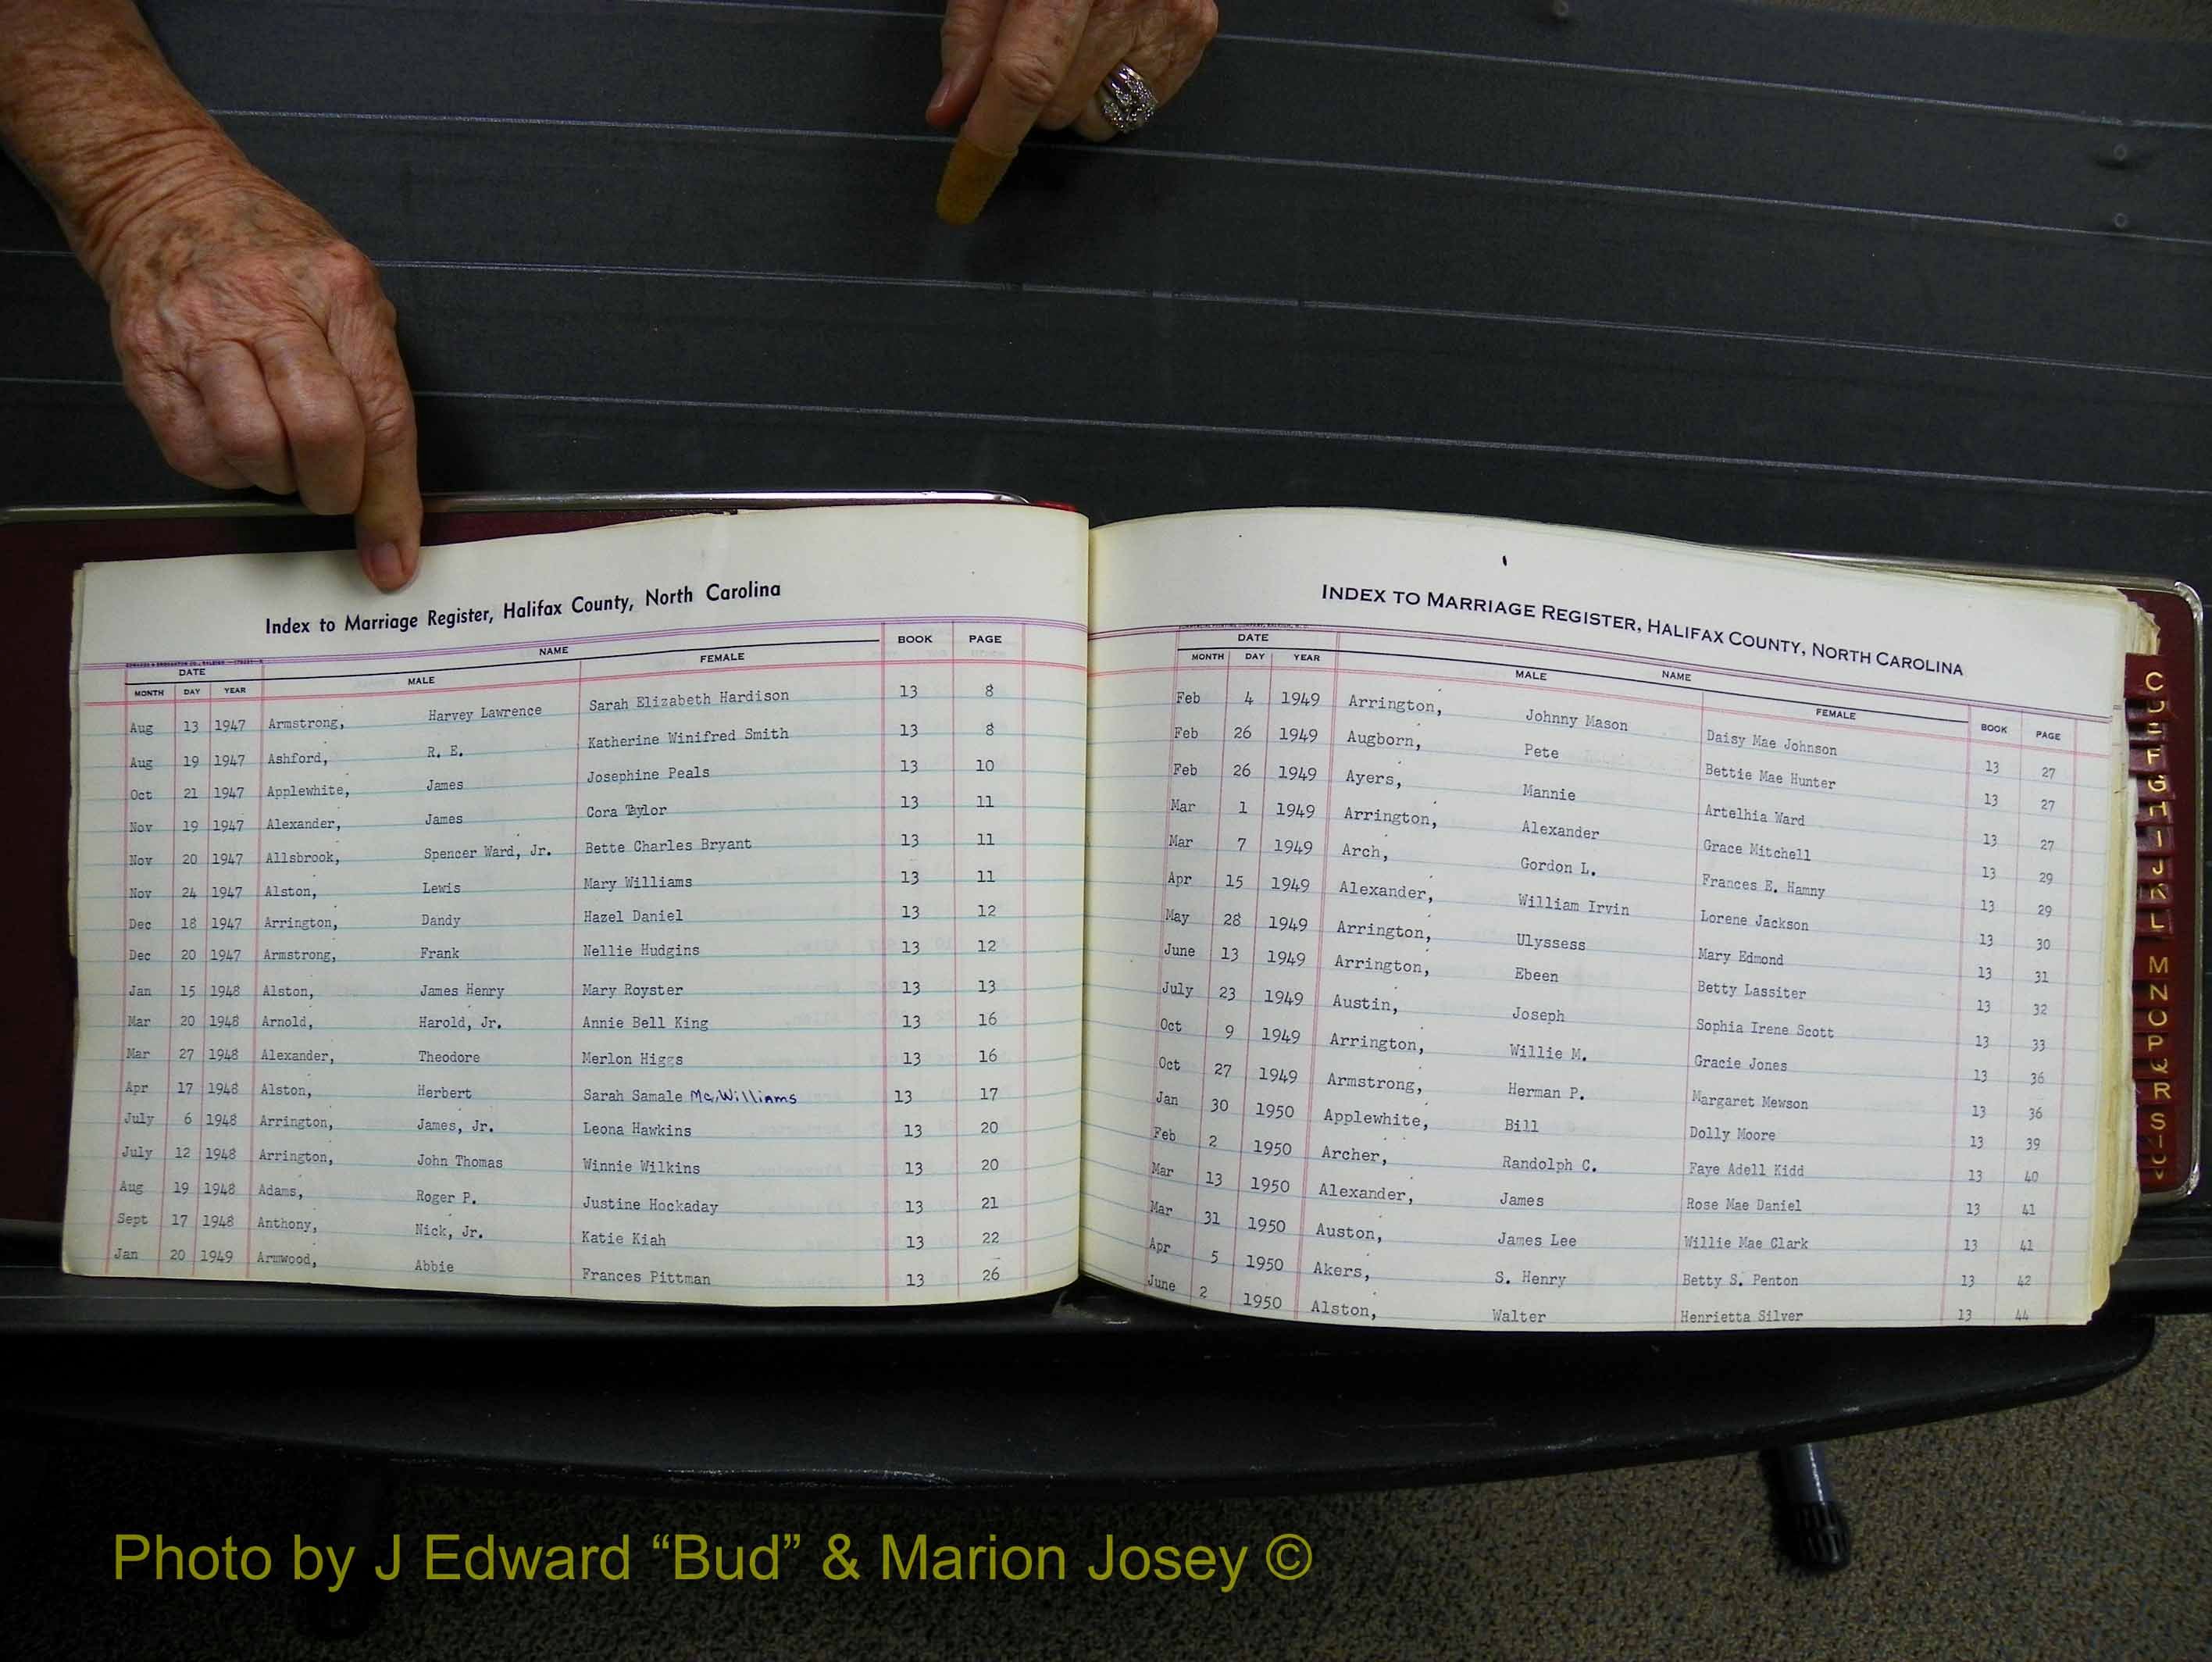 Index to Marriage Register, Halifax County, North Carolina
DATE NAME BOOK PAGE
MONTH DAY YEAR MALE FEMALE
Aug 13 1947 Armstrong, Harvey Lawrence Sarah Elizabeth Hardison 13 8
Aug 19 1947 Ashford, R. E. Katherine Winifred Smith 13 8
Oct 21 1947 Applewhite, James Josephine Peals 13 10
Nov 19 1947 Alexander, James Cora Taylor 13 11
Nov 20 1947 Allsbrook, Spencer Ward, Jr. Bette Charles Bryant 13 11
Nov 24 1947 Alston, Lewis Mary Williams 13 11
Dec 18 1947 Arrington, Dandy Hazel Daniel 13 12
Dec 20 1947 Armstrong, Frank Nellie Hudgins 13 12
Jan 15 1948 Alston, James Henry Mary Royster 13 13
Mar 20 1948 Arnold, Harold, Jr. Annie Bell King 13 16
Mar 27 1948 Alexander, Theodore Merlon Higgs 13 16
Apr 17 1948 Alston, Herbert Sarah Samale McWilliams 13 17
July 6 1948 Arrington, James, Jr. Leona Hawkins 13 20
July 12 1948 Arrington, John Thomas Winnie Wilkins 13 20
Aug 19 1948 Adams, Roger P. Justine Hockaday 13 21
Sept 17 1948 Anthony, Nick, Jr. Katie Kiah 13 22
Jan 20 1949 Armwood, Abbie Frances Pittman 13 26
INDEX TO MARRIAGE REGISTER, HALIFAX COUNTY, NORTH CAROLINA
DATE NAME
MONTH DAY YEAR MALE FEMALE BOOK PAGE
Feb 4 1949 Arrington, Johnny Mason Daisy Mae Johnson 13 27
Feb 26 1949 Augborn, Pete Bettie Mae Hunter 13 27
Feb 26 1949 Ayers, Mannie Artelhia Ward 13 27
Mar 1 1949 Arrington, Alexander Grace Mitchell 13 29
Mar 7 1949 Arch, Gordon L. Frances E. Hamny 13 29
Apr 15 1949 Alexander, William Irvin Lorene Jackson 13 30
May 28 1949 Arrington, Ulyssess Mary Edmond 13 31
June 13 1949 Arrington, Ebeen Betty Lassiter 13 32
July 23 1949 Austin, Joseph Sophia Irene Scott 13 33
Oct 9 1949 Arrington, Willie M. Gracie Jones 13 36
Oct 27 1949 Armstrong, Herman P. Margaret Mewson 13 36
Jan 30 1950 Applewhite, Bill Dolly Moore 13 39
Feb 2 1950 Archer, Randolph C. Faye Adell Kidd 13 40
Mar 13 1950 Alexander, James Rose Mae Daniel 13 41
Mar 31 1950 Auston, James Lee Willie Mae Clark 13 41
Apr 5 1950 Akers, S. Henry Betty S. Penton 13 42
June 2 1950 Alston, Walter Henrietta Silver 13 44
C
F
G
H
I
J
K
L
M
N
O
P
Q
R
S
Photo by J Edward “Bud” & Marion Josey ©